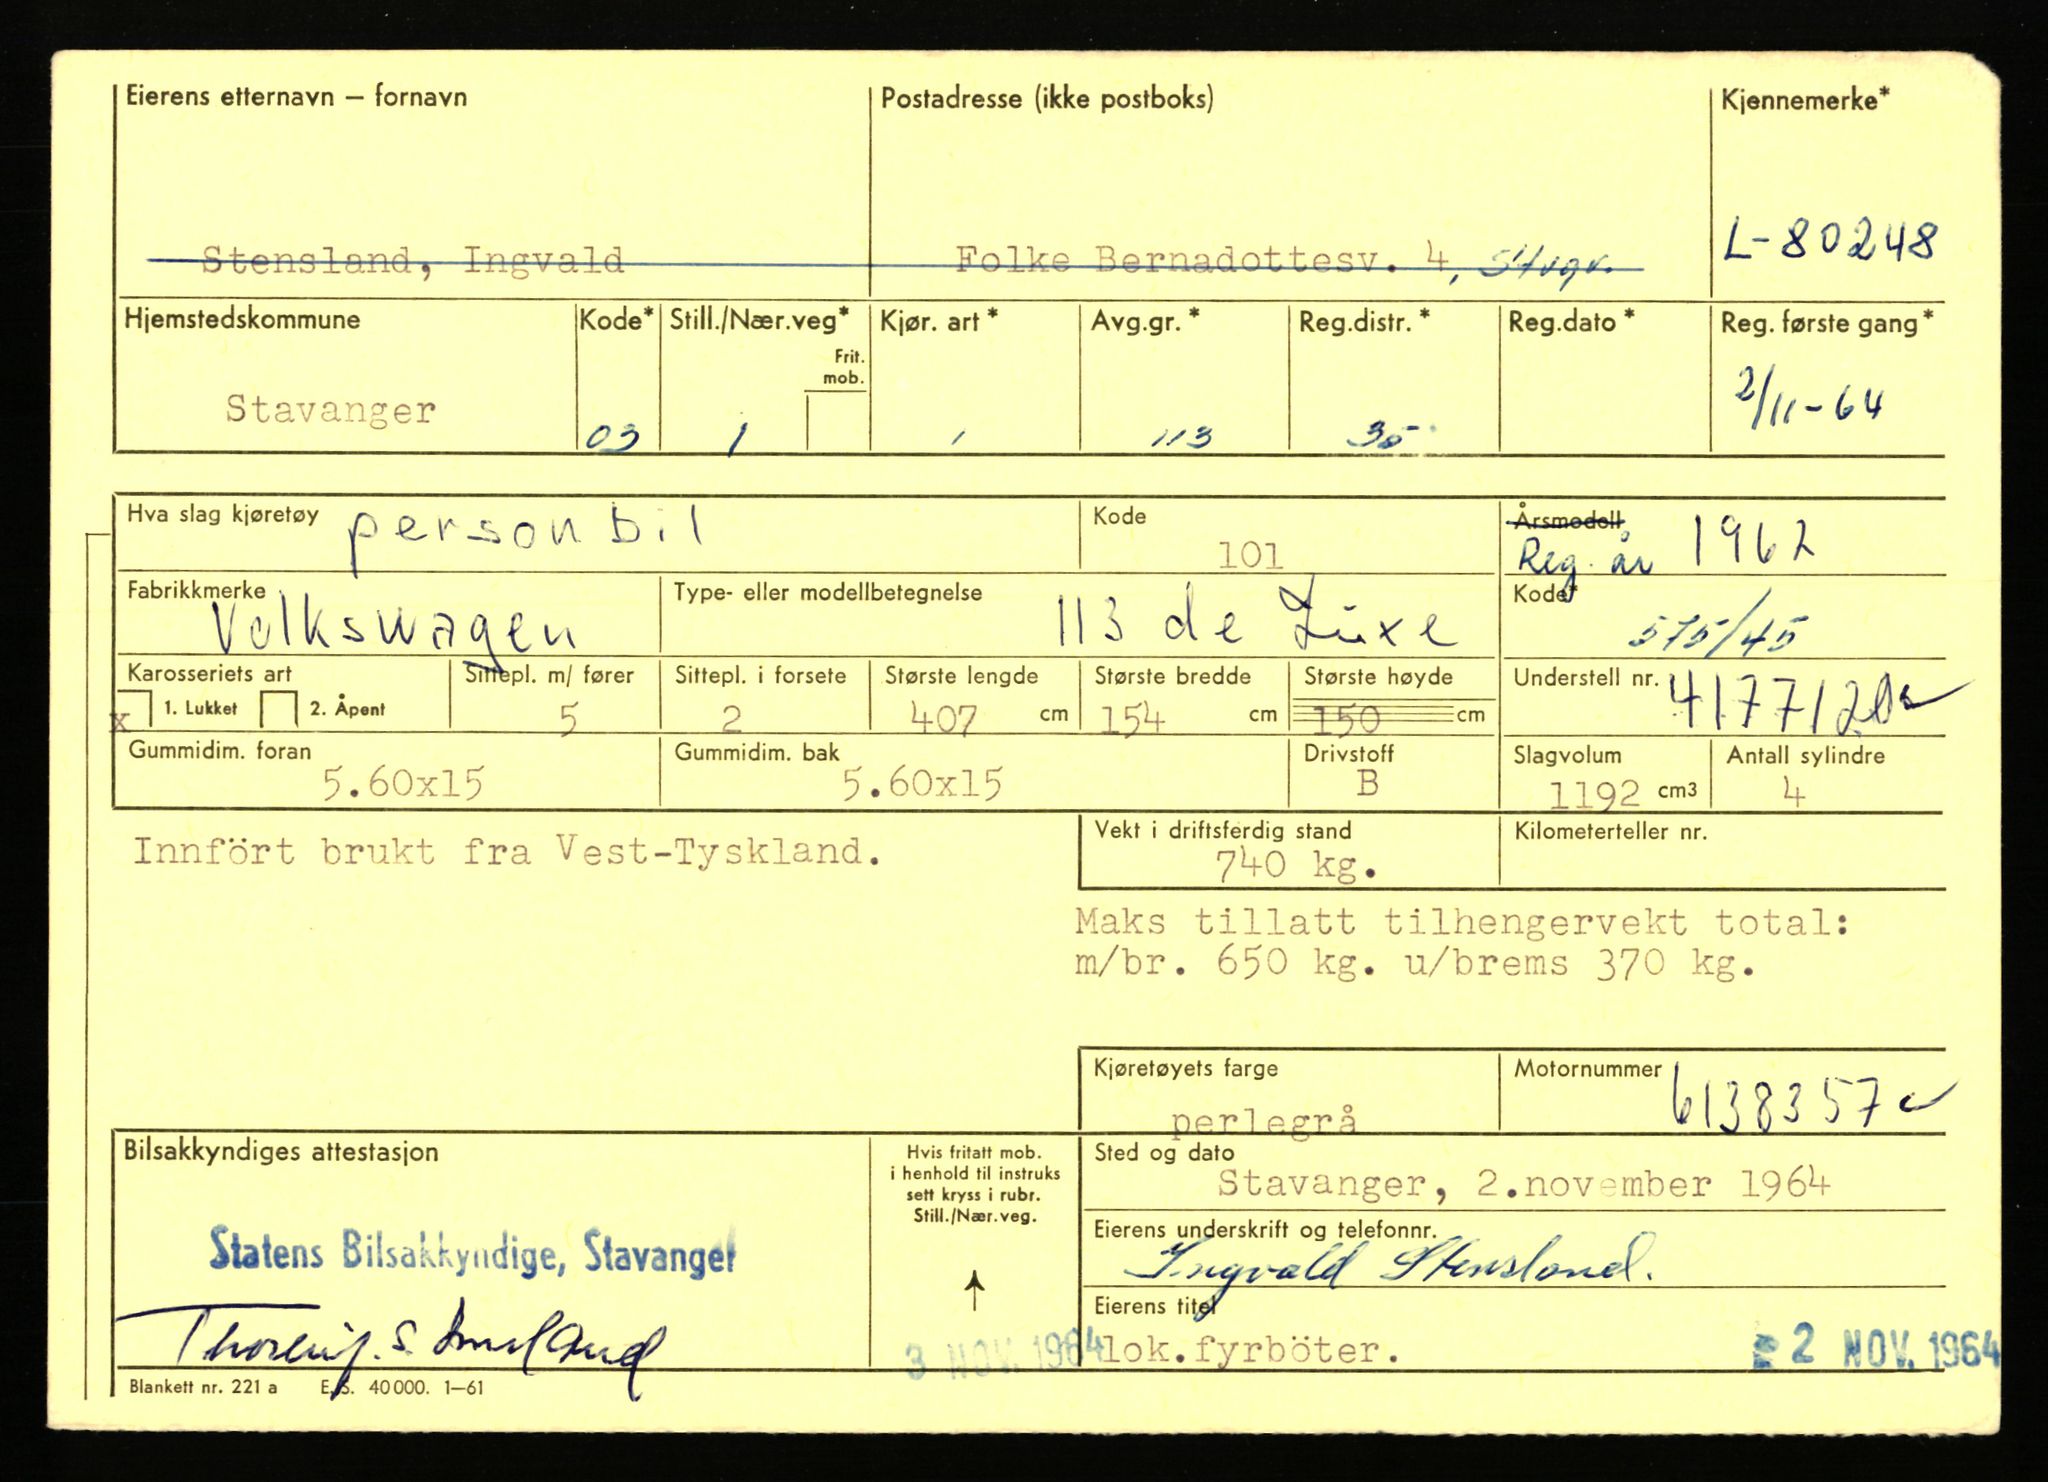 Eierens etternavn – fornavn
Postadresse (ikke postboks)
Kjennemerke*
Stensland, Ingvald
Folke Bernadottesv. 4, Stvgr.
L-80248
Hjemstedskommune
Kode*
Still./Nær.veg*
Frit.
mob.
Kjør. art *
Avg.gr. *
Reg.distr. *
Reg.dato *
Reg. første gang *
Stavanger
03
1
1
113
35
2/11-64
Hva slag kjøretøy
personbil
Kode
101
Årsmodell
Reg. år 1962
Fabrikkmerke
Volkswagen
Type- eller modellbetegnelse
113 de Luxe
Kode*
575/45
Karosseriets art
x 1. Lukket 2. Åpent
Sittepl. m/ fører
5
Sittepl. i forsete
2
Største lengde
407 cm
Største bredde
154 cm
Største høyde
150 cm
Understell nr.
4177120
Gummidim. foran
5.60x15
Gummidim. bak
5.60x15
Drivstoff
B
Slagvolum
1192 cm3
Antall sylindre
4
Innfört brukt fra Vest-Tyskland.
Vekt i driftsferdig stand
740 kg.
Kilometerteller nr.
Maks tillatt tilhengervekt total:
m/br. 650 kg. u/brems 370 kg.
Kjøretøyets farge
perlegrå
Motornummer
6138357
Bilsakkyndiges attestasjon
Statens Bilsakkyndige, Stavanger
Hvis fritatt mob.
i henhold til instruks
sett kryss i rubr.
Still./Nær.veg.
3 NOV. 1964
Sted og dato
Stavanger, 2.november 1964
Eierens underskrift og telefonnr.
Ingvald Stensland.
Eierens titel
lok.fyrböter.
2 NOV. 1964
Blankett nr. 221 a E.S. 40 000. 1–61